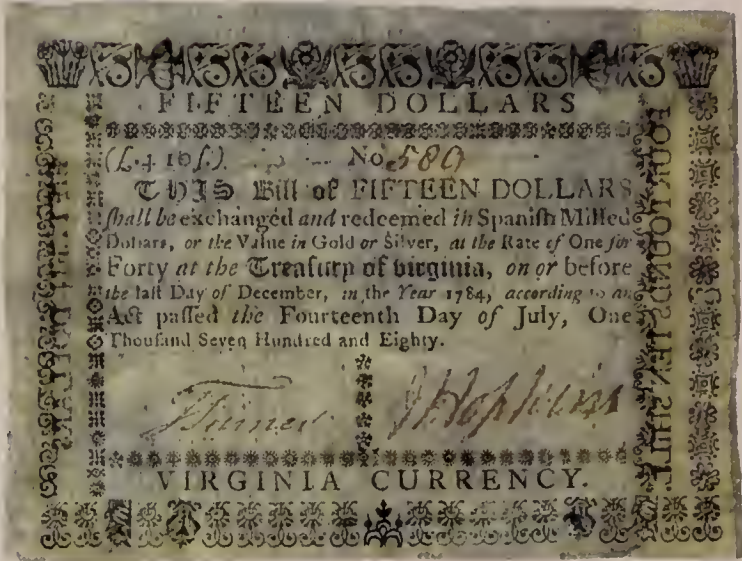 FIFTEEN DOLLARS
(L.4 10ſ.) No 580
THIS Bill of FIFTEEN DOLLARS
ſhall be exchanged and redeemed in Spaniſh Milled
Dollars, or the Value in Gold or Silver, at the Rate of One for
Forty at the Treaſury of Virginia, on or before
the laſt Day of December, in the Year 1784, according to an
Act paſſed the Fourteenth Day of July, One
Thouſand Seven Hundred and Eighty.
J Hopkins
VIRGINIA CURRENCY.
FOUR POUNDS TEN SHILL